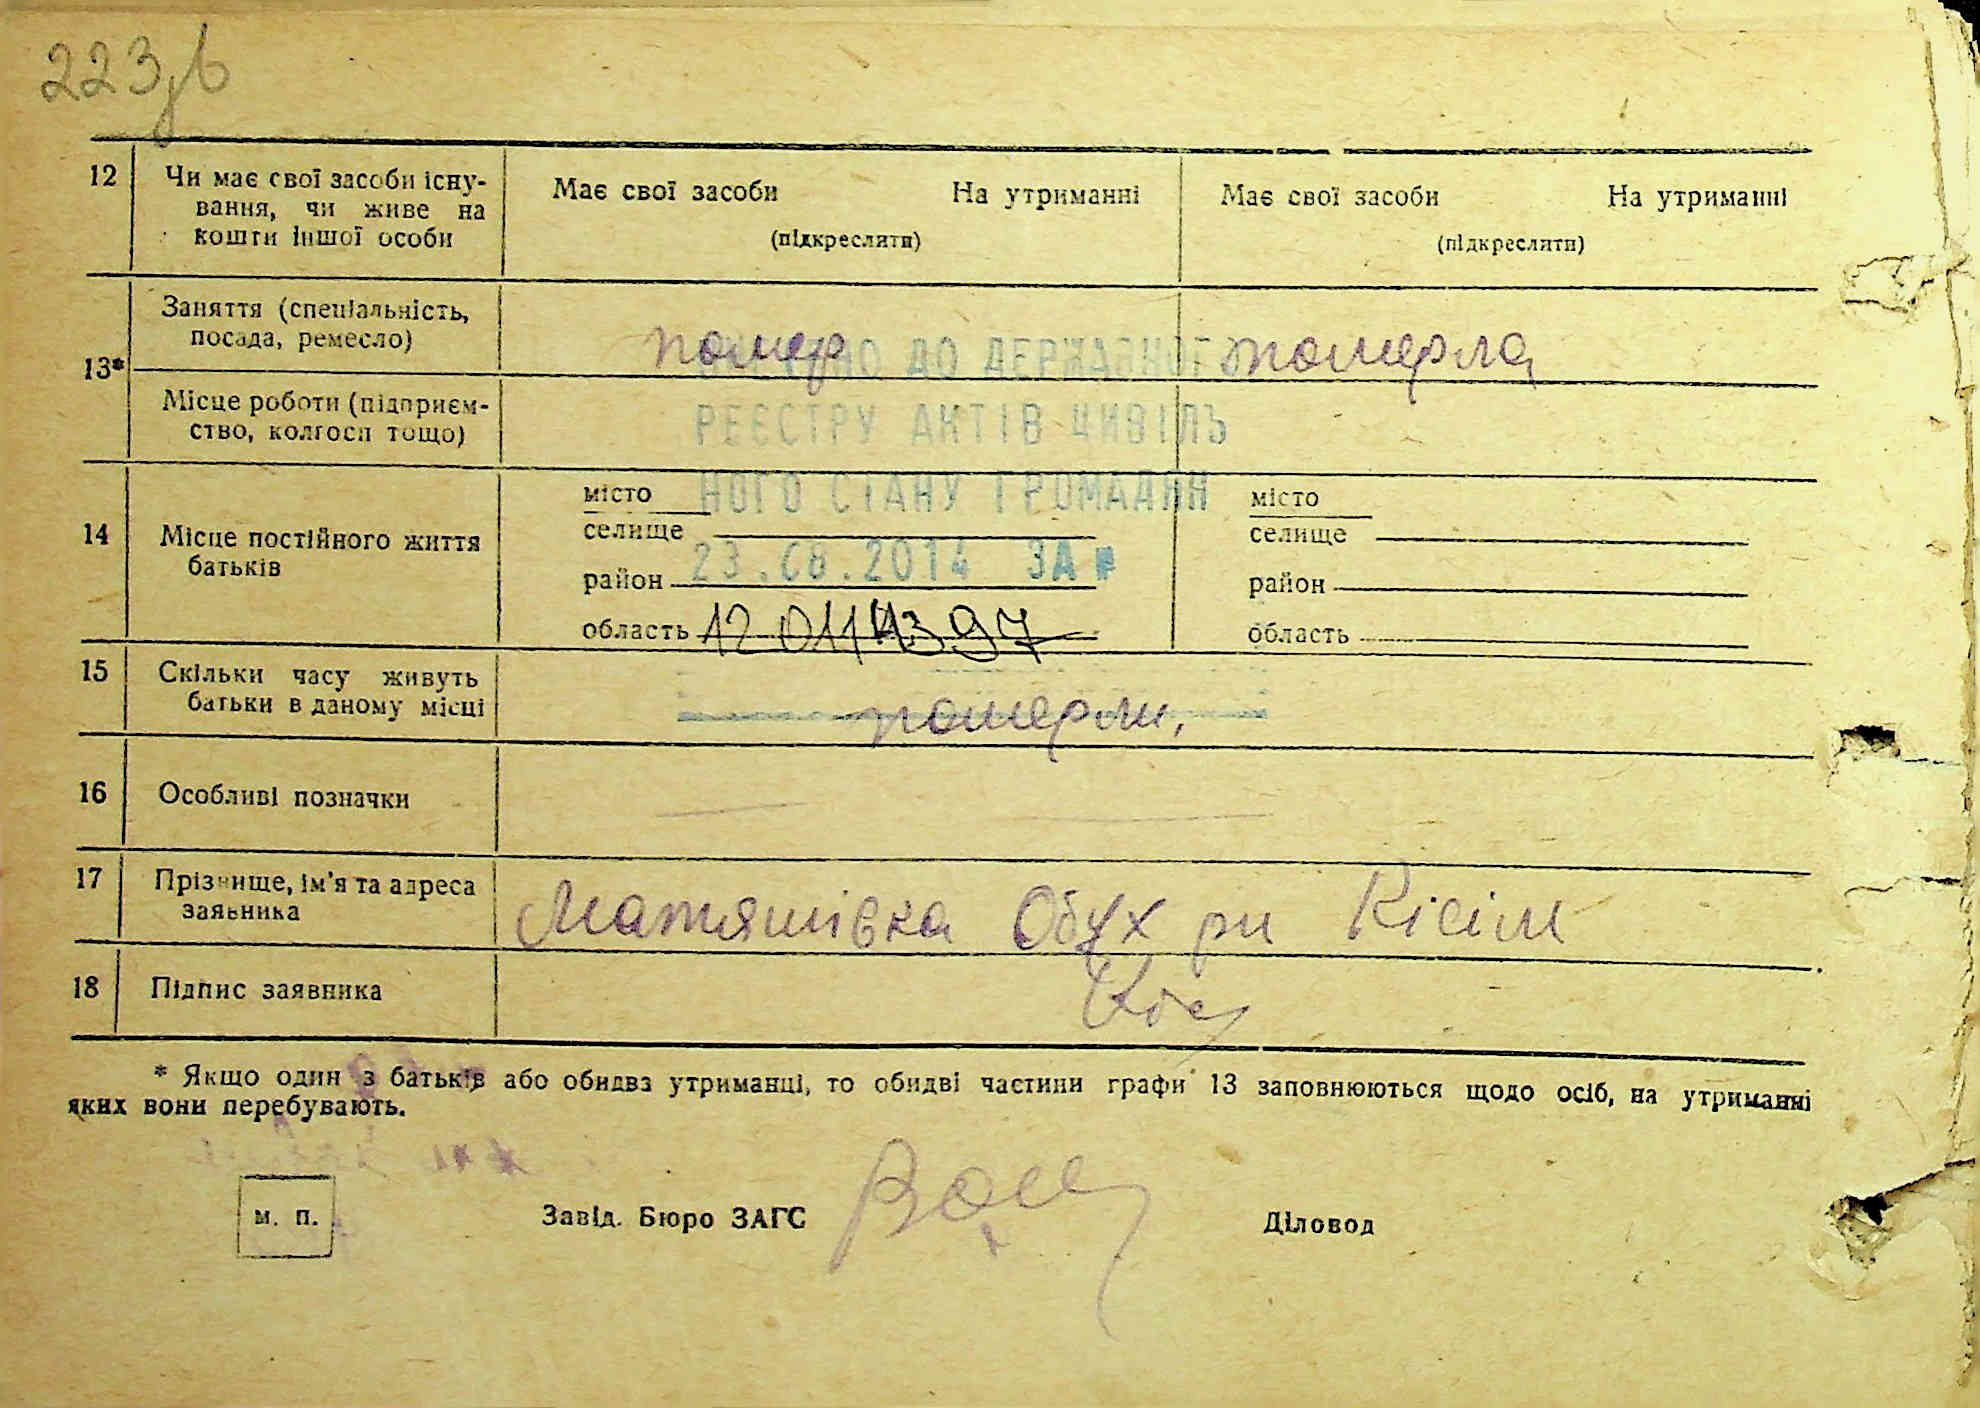 223
12 Чи має свої засоби існу- Має свої засоби На утриманні Має свої засоби На утриманні
вання, чи живе на
кошти іншої особи (підкреслити) (підкреслити)
Заняття (спеціальність,
посада, ремесло) помер померла
НО ДО ДЕРЖАВНОГО
13*
Місце роботи (підприєм-
ство, колгосп тощо)
РЕЄСТРУ АКТІВ ЦИВІЛЬ
НОГО СТАНУ ГРОМАДЯН
місто місто
14 Місце постійного життя селище селище
батьків
23.08.2014 ЗА №
район район
область 12 01114397 область
15 Скільки часу живуть
батьки в даному місці померли,
16 Особливі позначки
17 Прізвище, ім'я та адреса
заявника Матяшівка Обух рн
18 Підпис заявника
* Якщо один з батьків або обидва утриманці, то обидві частини графи 13 заповнюються щодо осіб, на утриманні
яких вони перебувають.
м. п. Завід. Бюро ЗАГС Діловод